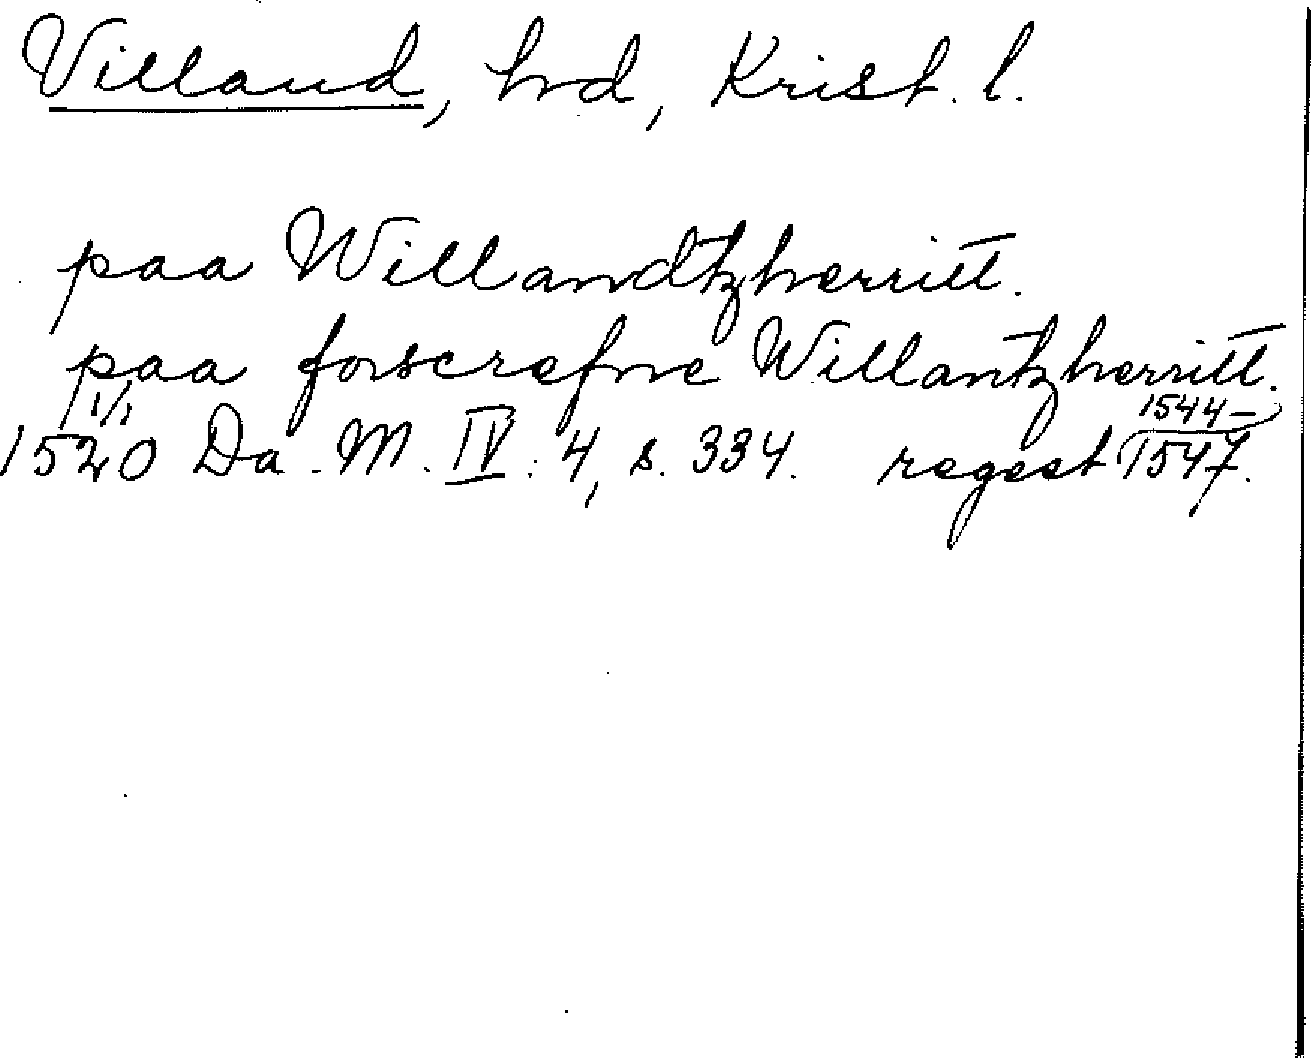 Villand, hd, Krist. l.
paa Willandtzherritt.
paa forscrefne Willantzherritt.
1/1 1544-
1520 Da. M. IV. 4, s. 334. regest 1547.